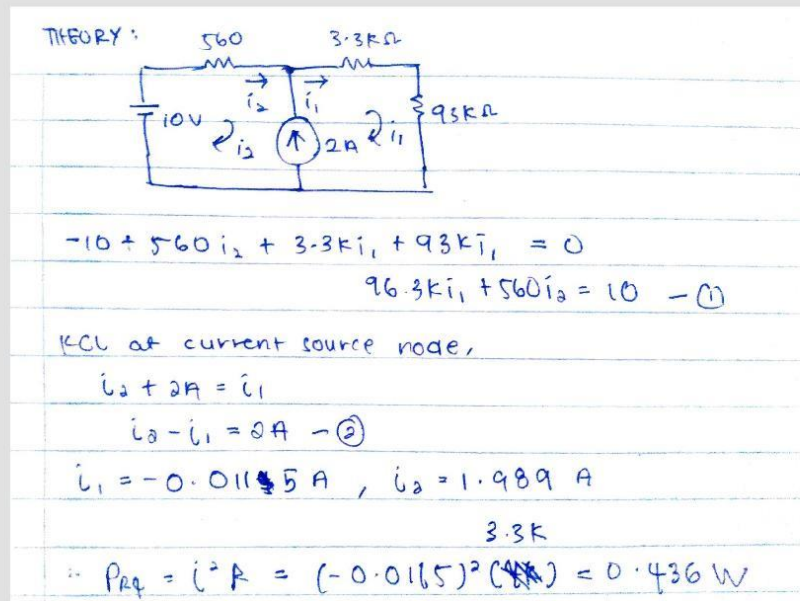 THEORY:
560 3.3KΩ
i₂ i₁
10V i₂ 2A i₁ 93KΩ
-10 + 560i₂ + 3.3Ki₁ + 93Ki₁ = 0
96.3Ki₁ + 560i₂ = 10 - ①
KCL at current source node,
i₂ + 2A = i₁
i₂ - i₁ = 2A - ②
i₁ = -0.0115 A , i₂ = 1.989 A
3.3K
∴ PR4 = i²R = (-0.0115)² ( ) = 0.436 W